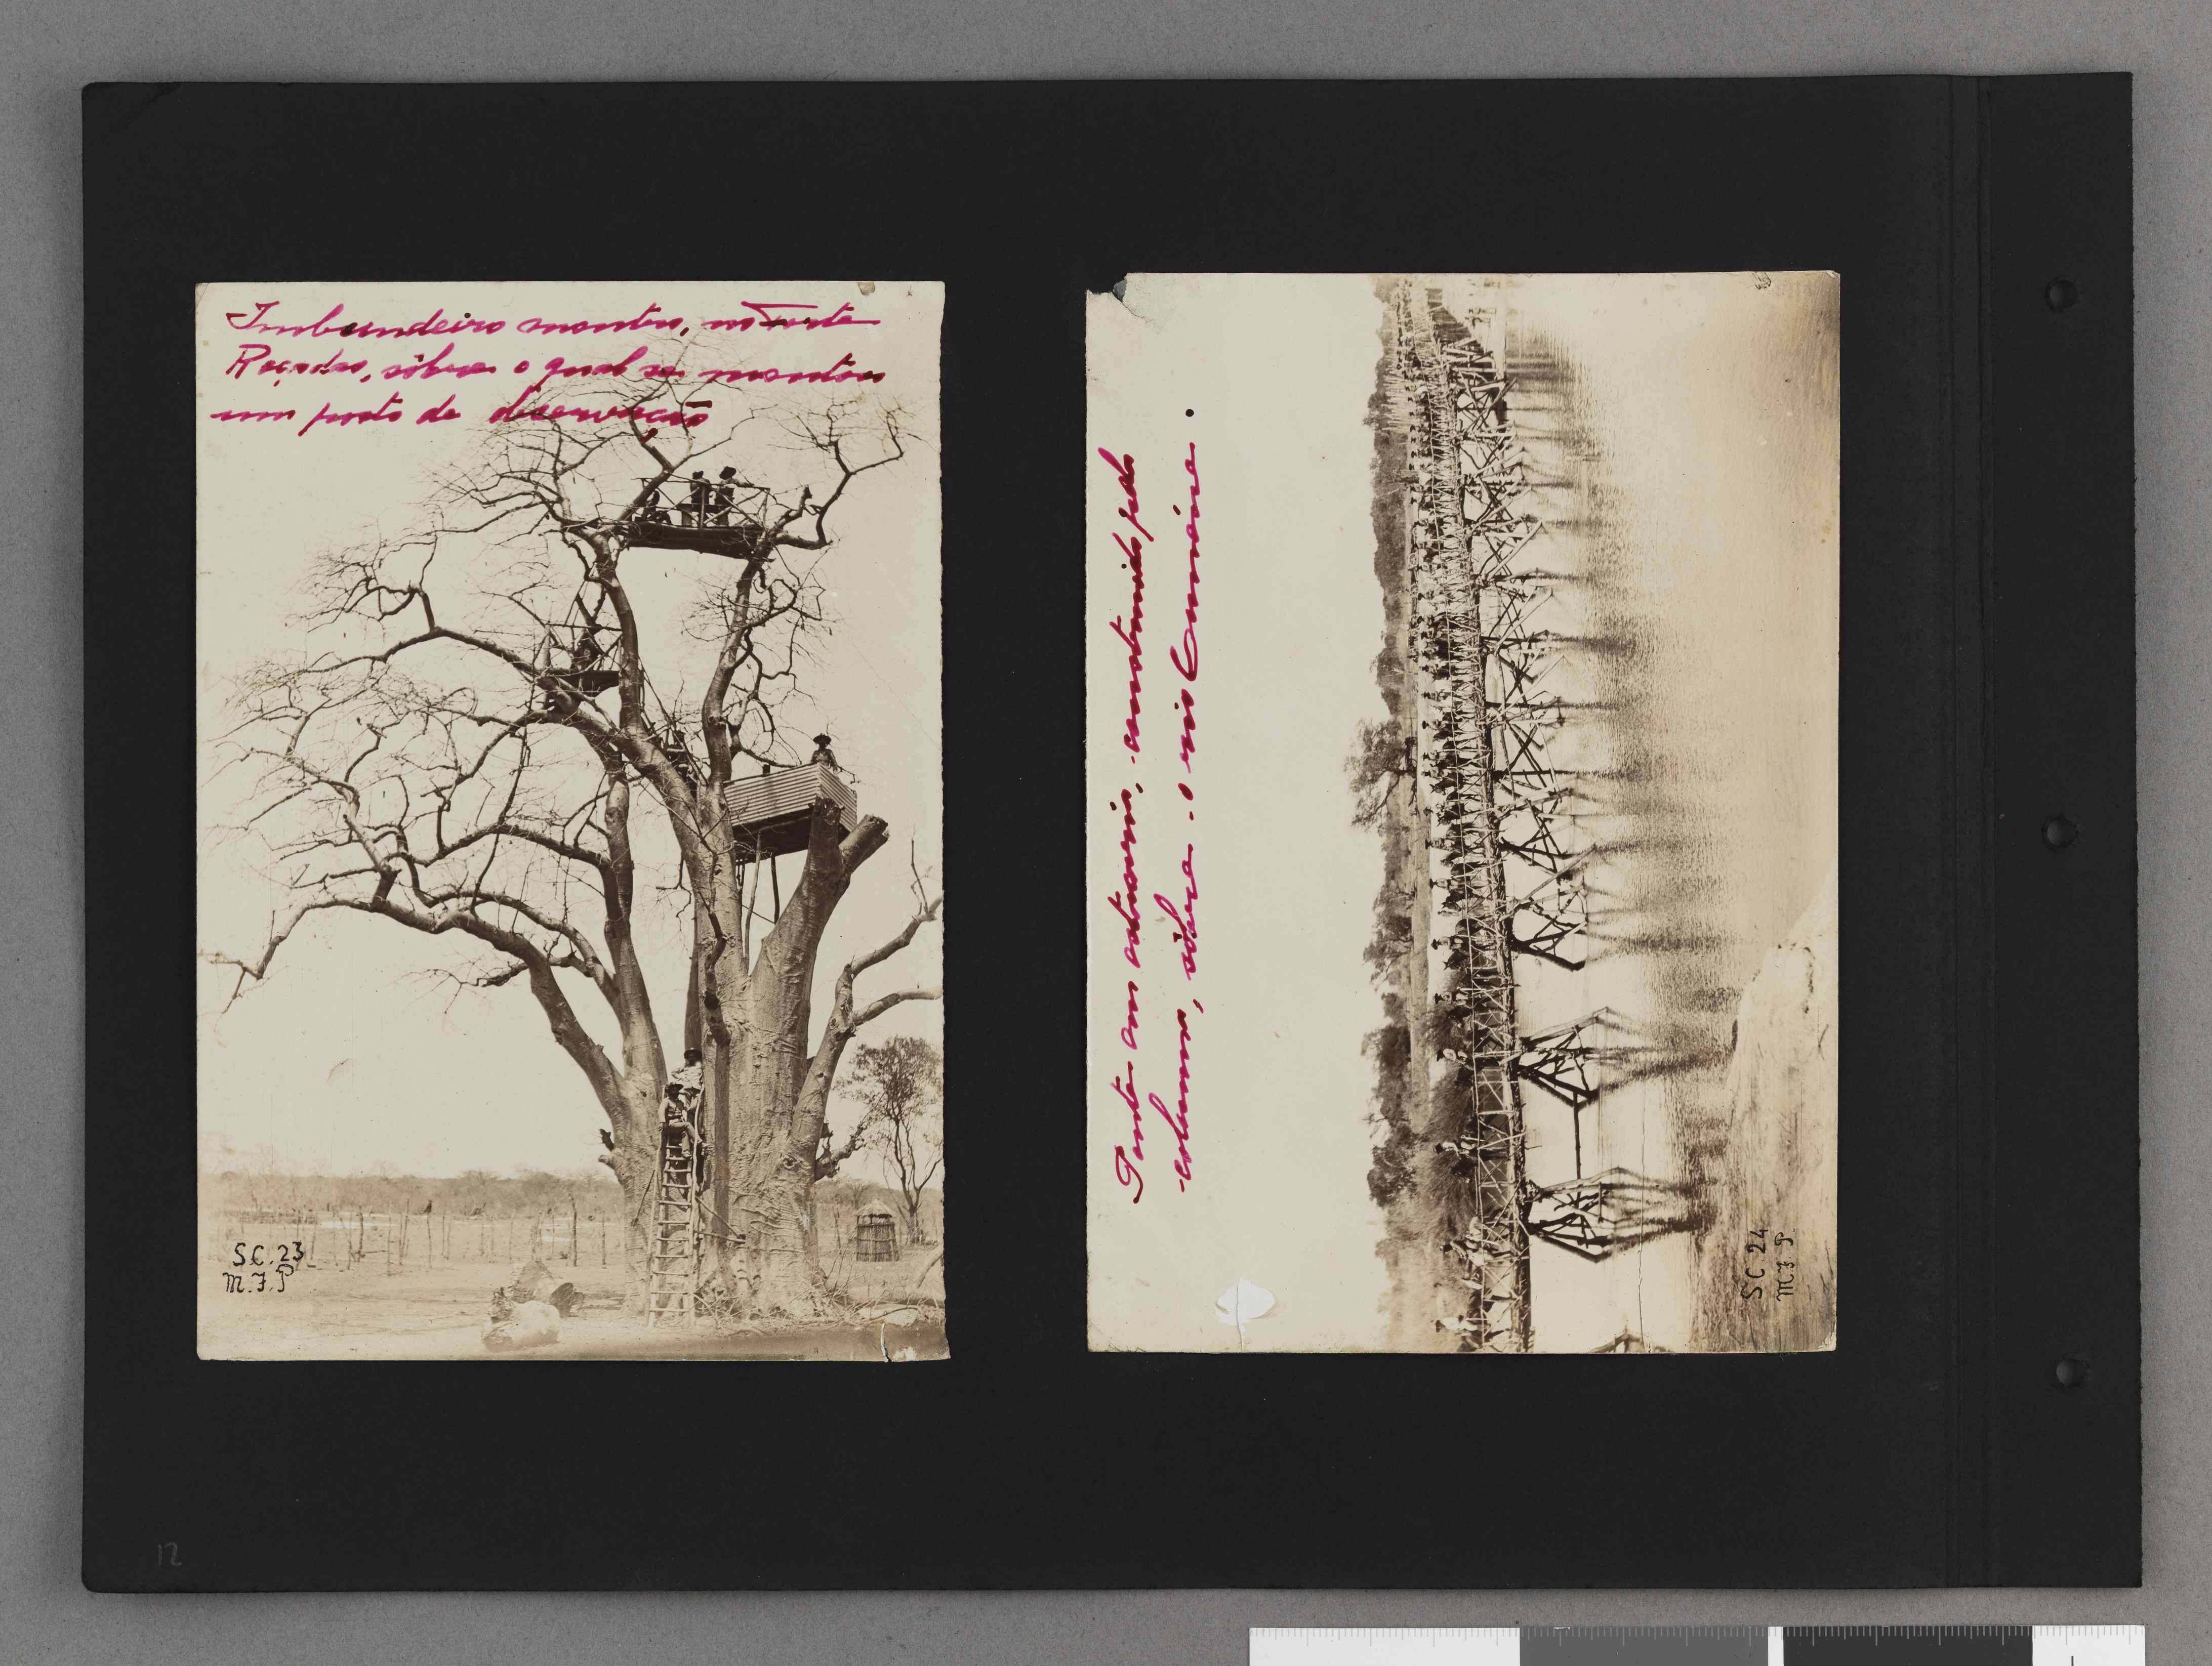 Imbundeiro monstro, no Forte
Roçadas, sôbre o qual se montou
um posto de observação
S.C. 23
M.F.P
Ponte em estacaria, construida pela
coluna, sôbre o rio Cunene.
SC 24
M.F.P.
12